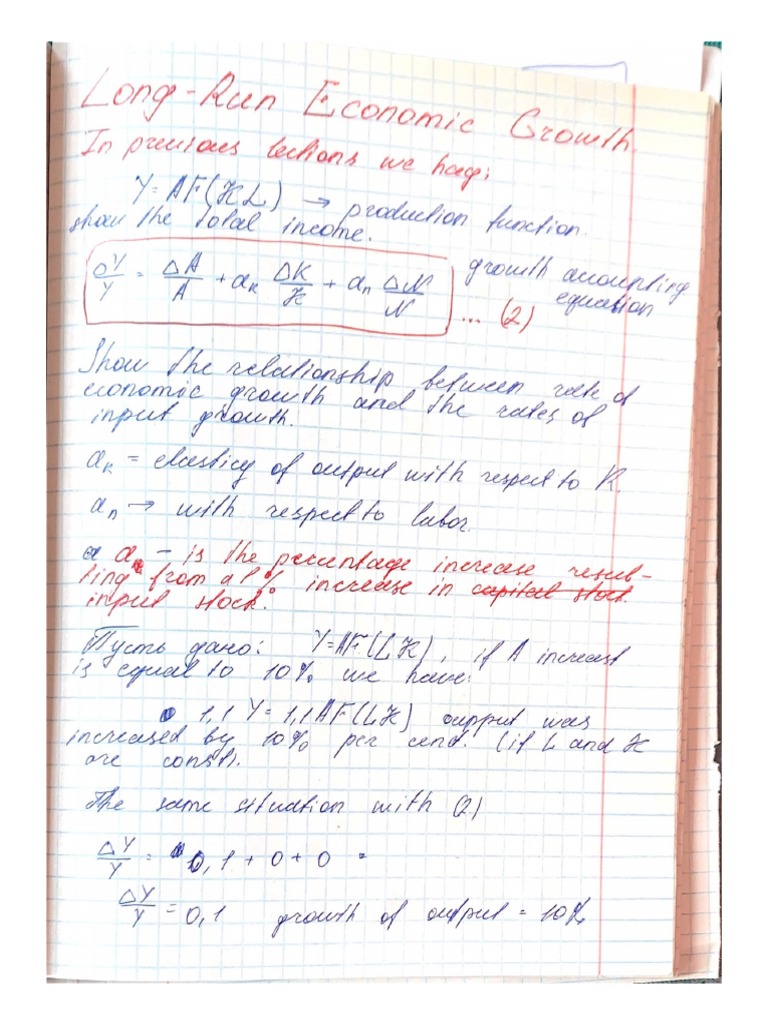 Long-Run Economic Growth.
In previous lections we have:
Y=AF(KL) → production function.
show the total income.
ΔY/Y = ΔA/A + aₖ ΔK/K + aₙ ΔN/N growth accounting
equation
... (2)
Show the relationship between rate of
economic growth and the rates of
input growth.
aₖ = elasticy of output with respect to K.
aₙ → with respect to labor.
a - is the percentage increase resul-
ting from a 1% increase in capital stock.
input stock.
Пусть дано: Y=AF(LK), if A increast
is equal to 10% we have:
1,1 Y = 1,1 AF(LK) output was
increased by 10% per cend. (if L and K
are const).
The same situation with (2)
ΔY/Y = 0,1 + 0 + 0 =
ΔY/Y = 0,1 growth of output = 10%